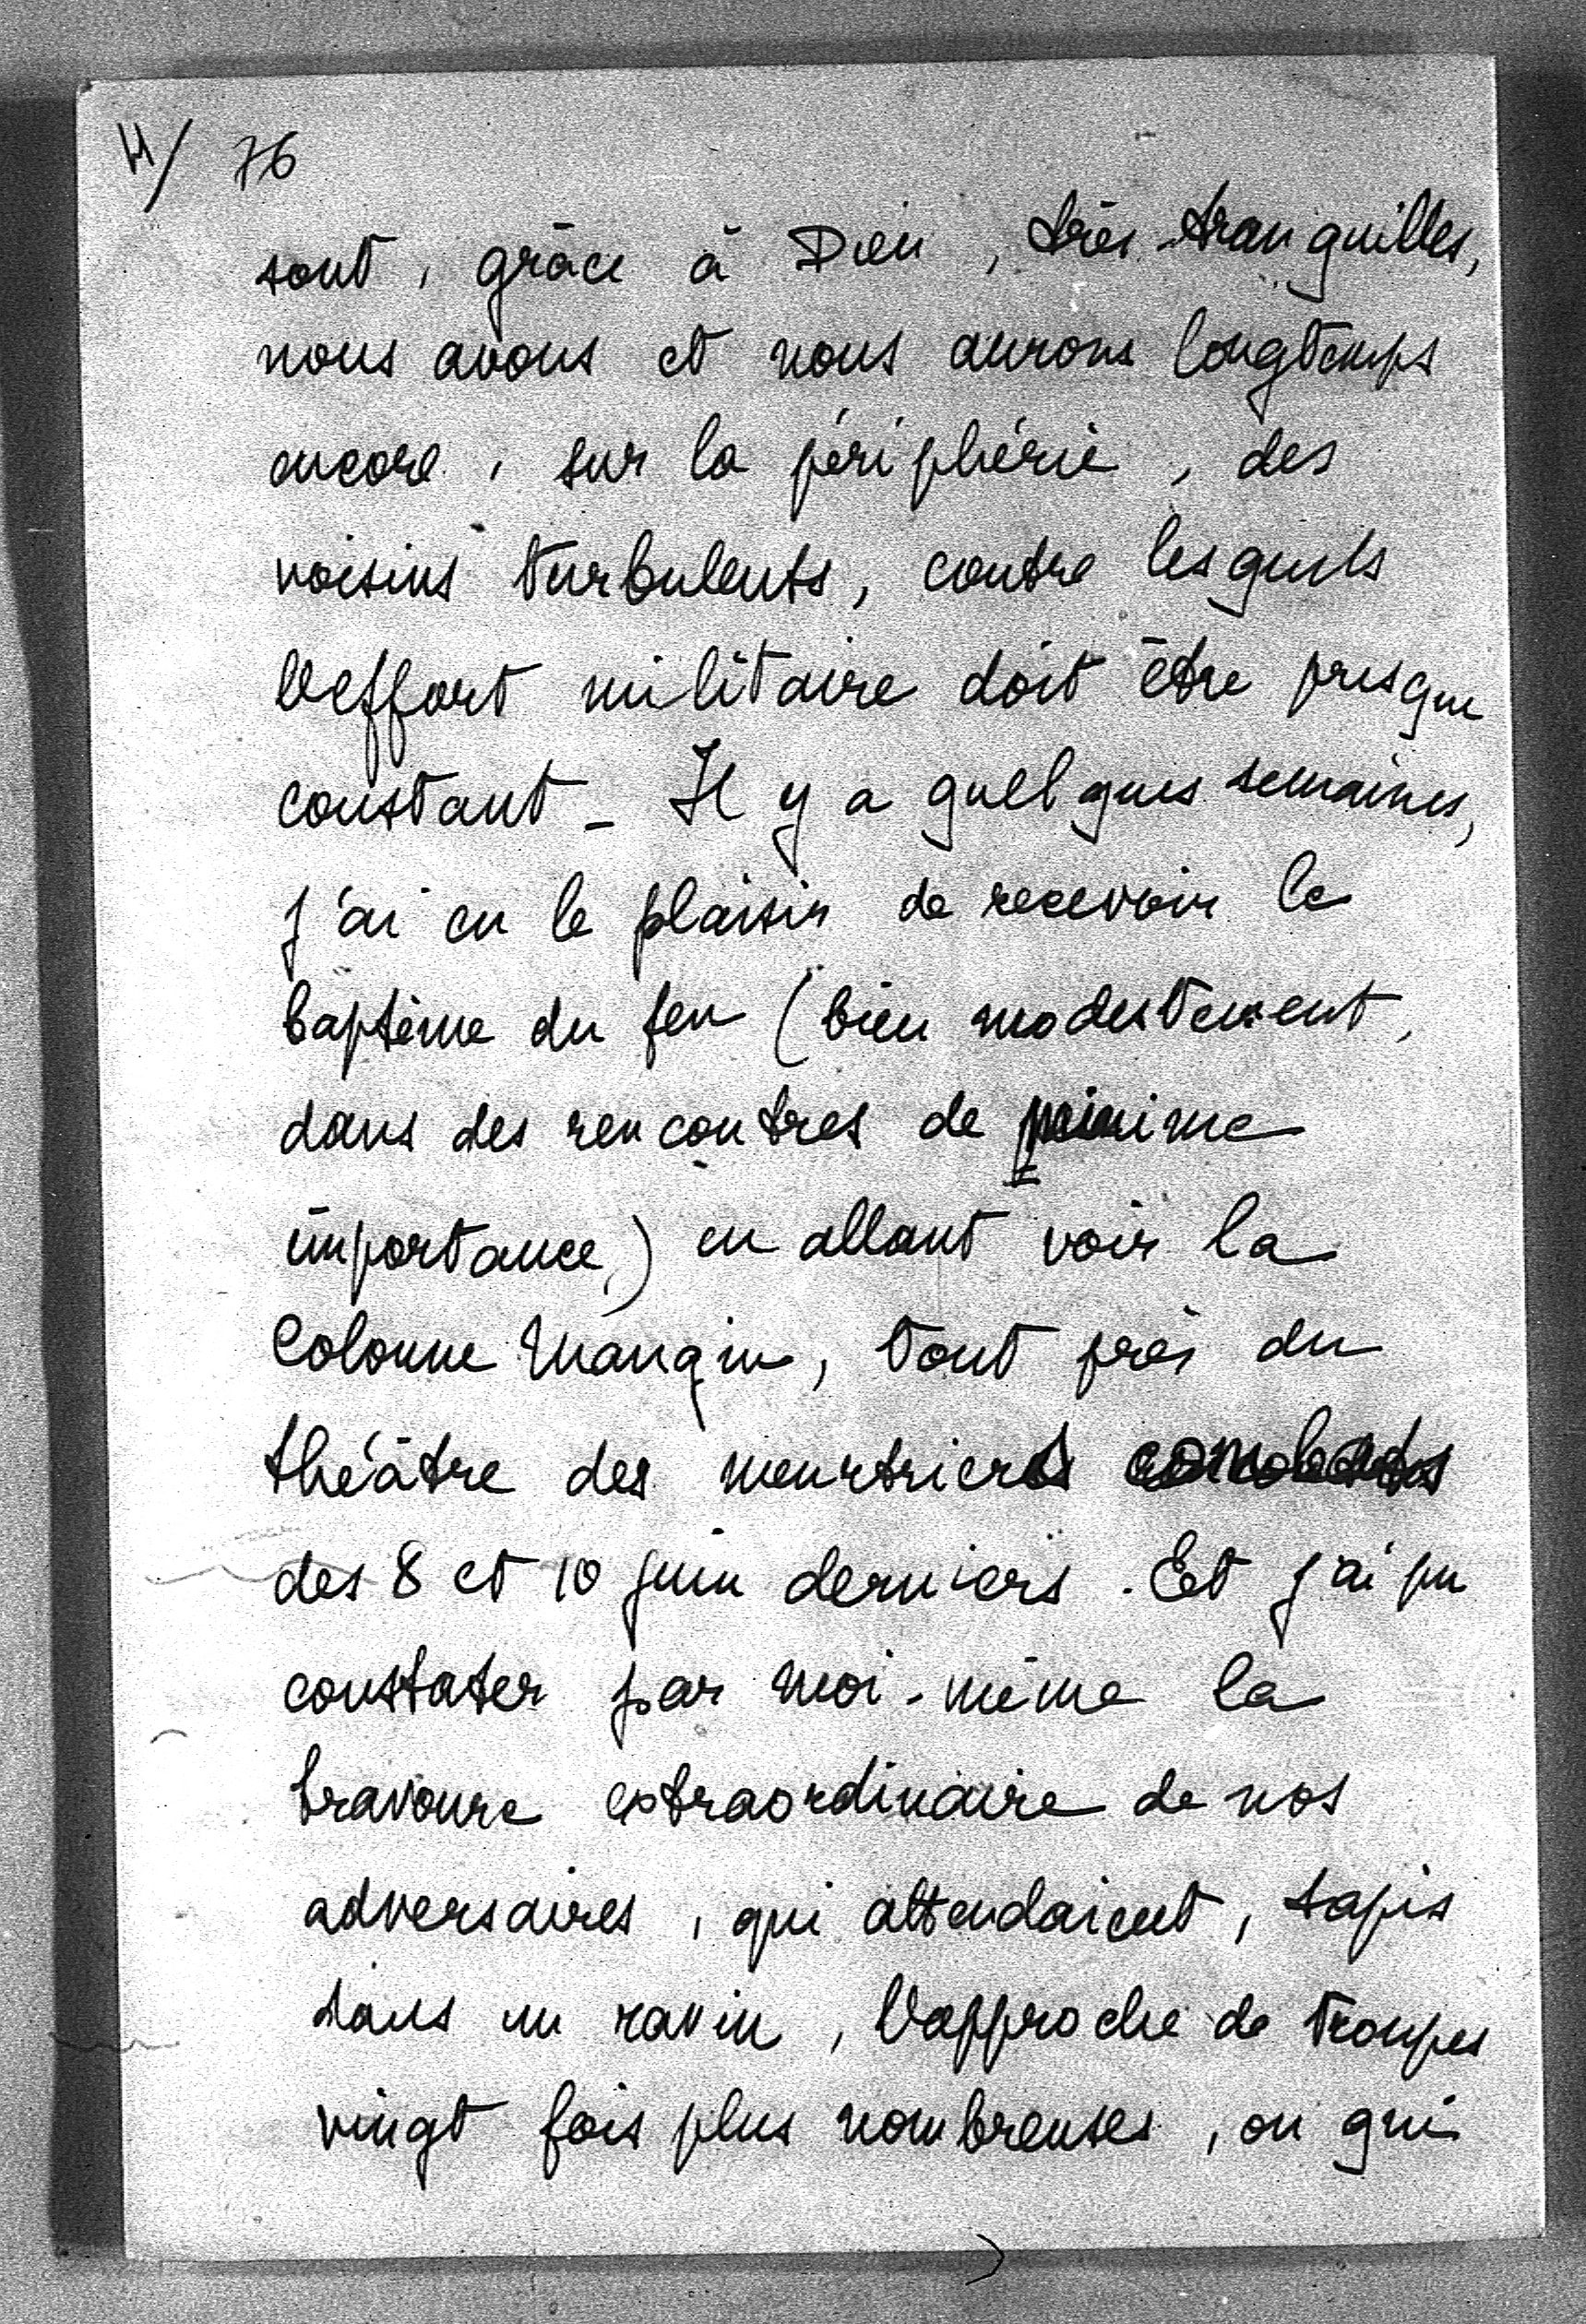 4/ 76
sont, grâce à Dieu, très-tranquilles,
nous avons et nous aurons longtemps
encore, sur la périphérie, des
voisins turbulents, contre lesquels
l'effort militaire doit être presque
constant _ Il y a quelques semaines,
j'ai eu le plaisir de recevoir le
baptême du feu (bien modestement,
dans des rencontres de minime
importance,) en allant voir la
Colonne Mangin, tout près du
théâtre des meurtriers combats
des 8 et 10 juin derniers. Et j'ai pu
constater par moi-même la
bravoure extraordinaire de nos
adversaires, qui attendaient, tapis
dans un ravin, l'approche de troupes
vingt fois plus nombreuses, ou qui